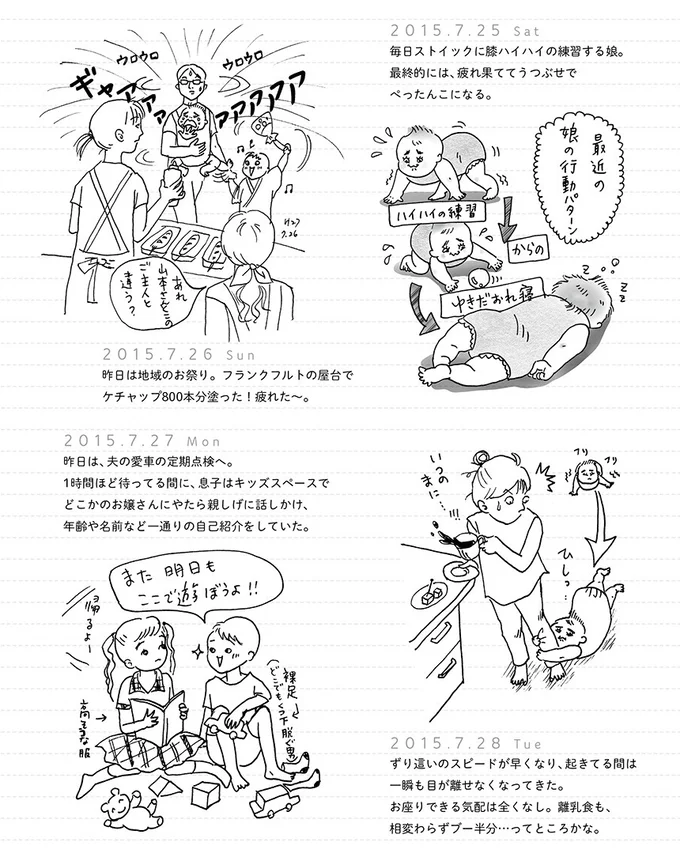 2015.7.25 Sat
毎日ストイックに膝ハイハイの練習する娘。
最終的には、疲れ果ててうつぶせで
ぺったんこになる。
最近の
娘の行動パターン
ハイハイの練習
からの
ゆきだおれ寝
z z
z z
ウロウロ
ウロウロ
ギャアアア
アアアアア
7.26
あれ
山本さんとこの
ご主人と
違う?
2015.7.26 Sun
昨日は地域のお祭り。フランクフルトの屋台で
ケチャップ800本分塗った!疲れた〜。
2015.7.27 Mon
昨日は、夫の愛車の定期点検へ。
1時間ほど待ってる間に、息子はキッズスペースで
どこかのお嬢さんにやたら親しげに話しかけ、
年齢や名前など一通りの自己紹介をしていた。
また 明日も
ここで遊ぼうよ!!
帰るよー
高そうな服
裸足
(どこでもくつ下脱ぐ男)
いつの
まに…!!!
フリ
フリ
ひしっ…
2015.7.28 Tue
ずり這いのスピードが早くなり、起きてる間は
一瞬も目が離せなくなってきた。
お座りできる気配は全くなし。離乳食も、
相変わらずブー半分…ってところかな。